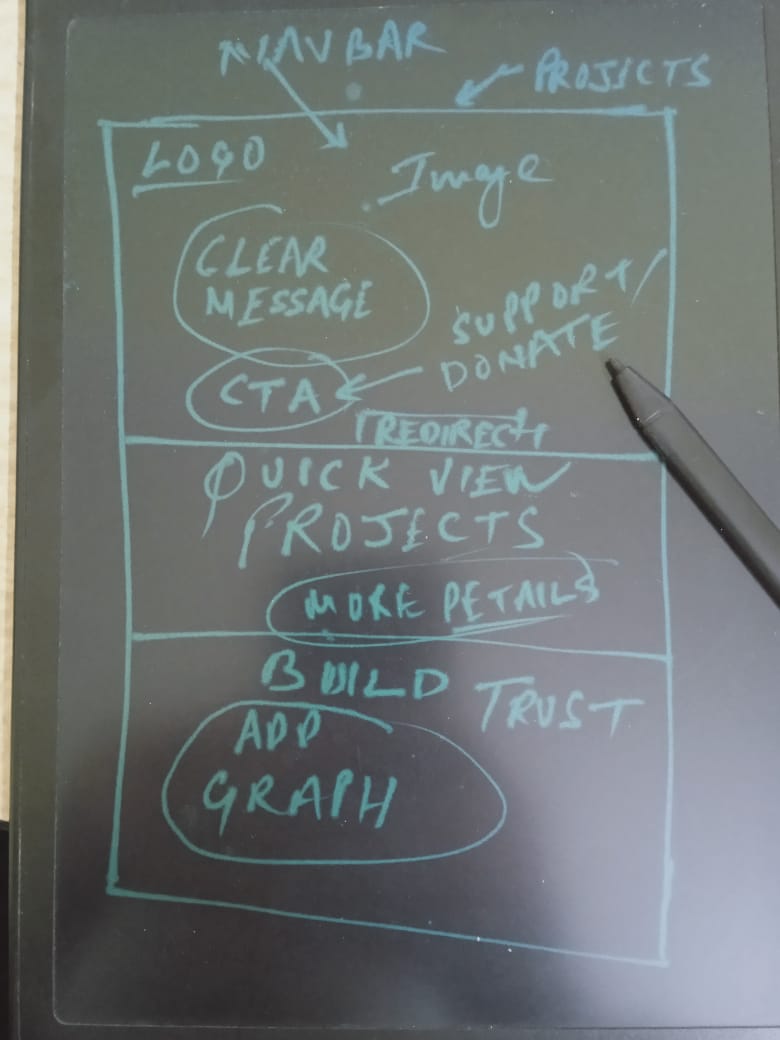 NAVBAR
PROJECTS
LOGO
Image
CLEAR
MESSAGE
SUPPORT/
DONATE
CTA
REDIRECT
QUICK VIEW
PROJECTS
MORE DETAILS
BUILD TRUST
ADD
GRAPH